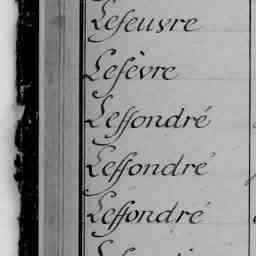 Lefeuvre
Lefèvre
Leffondré
Leffondré
Leffondré